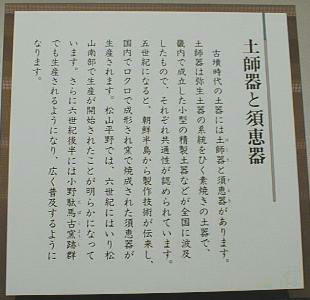 土師器と須恵器
古墳時代の土器には土師器と須恵器があります。
土師器は弥生土器の系統をひく素焼きの土器で、
畿内で成立した小型の精製土器などが全国に波及
したもので、それぞれ共通性が認められています。
五世紀になると、朝鮮半島から製作技術が伝来し、
国内でロクロで成形され窯で焼成された須恵器が
生産されます。松山平野では、六世紀にはいり松
山南部で生産が開始されたことが明らかになって
います。さらに六世紀後半には小野駄馬古窯跡群
でも生産されるようになり、広く普及するように
なります。